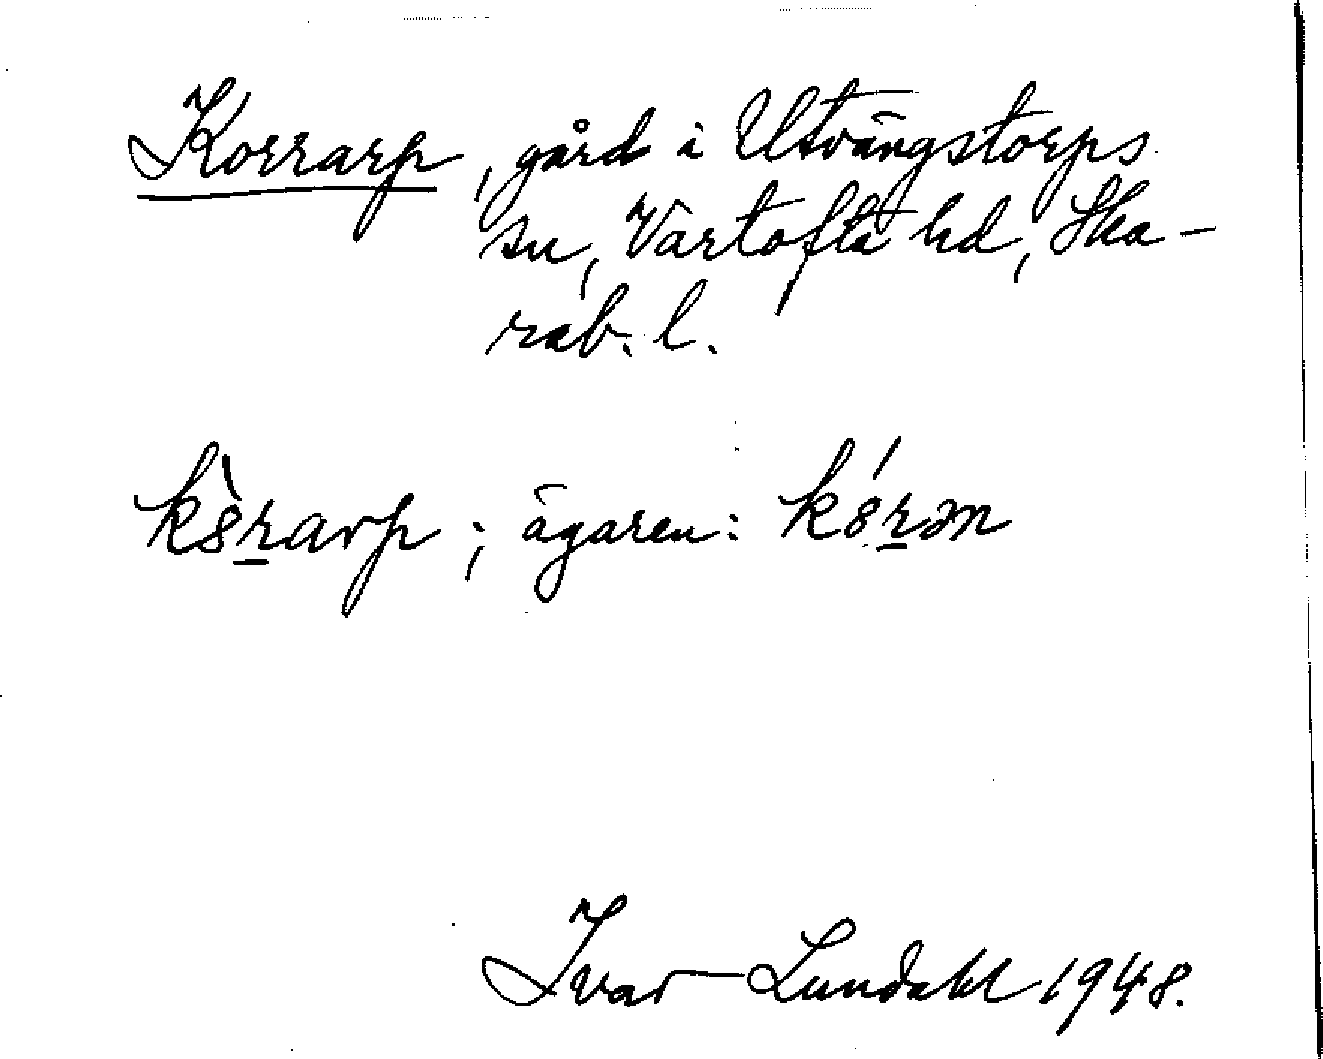 Korrarp, gård i Utvängstorps
sn, Vartofta hd, Ska-
rab. l.
kȣ̀rarp; ägaren: kȣ́rən
Ivar Lundahl 1948.